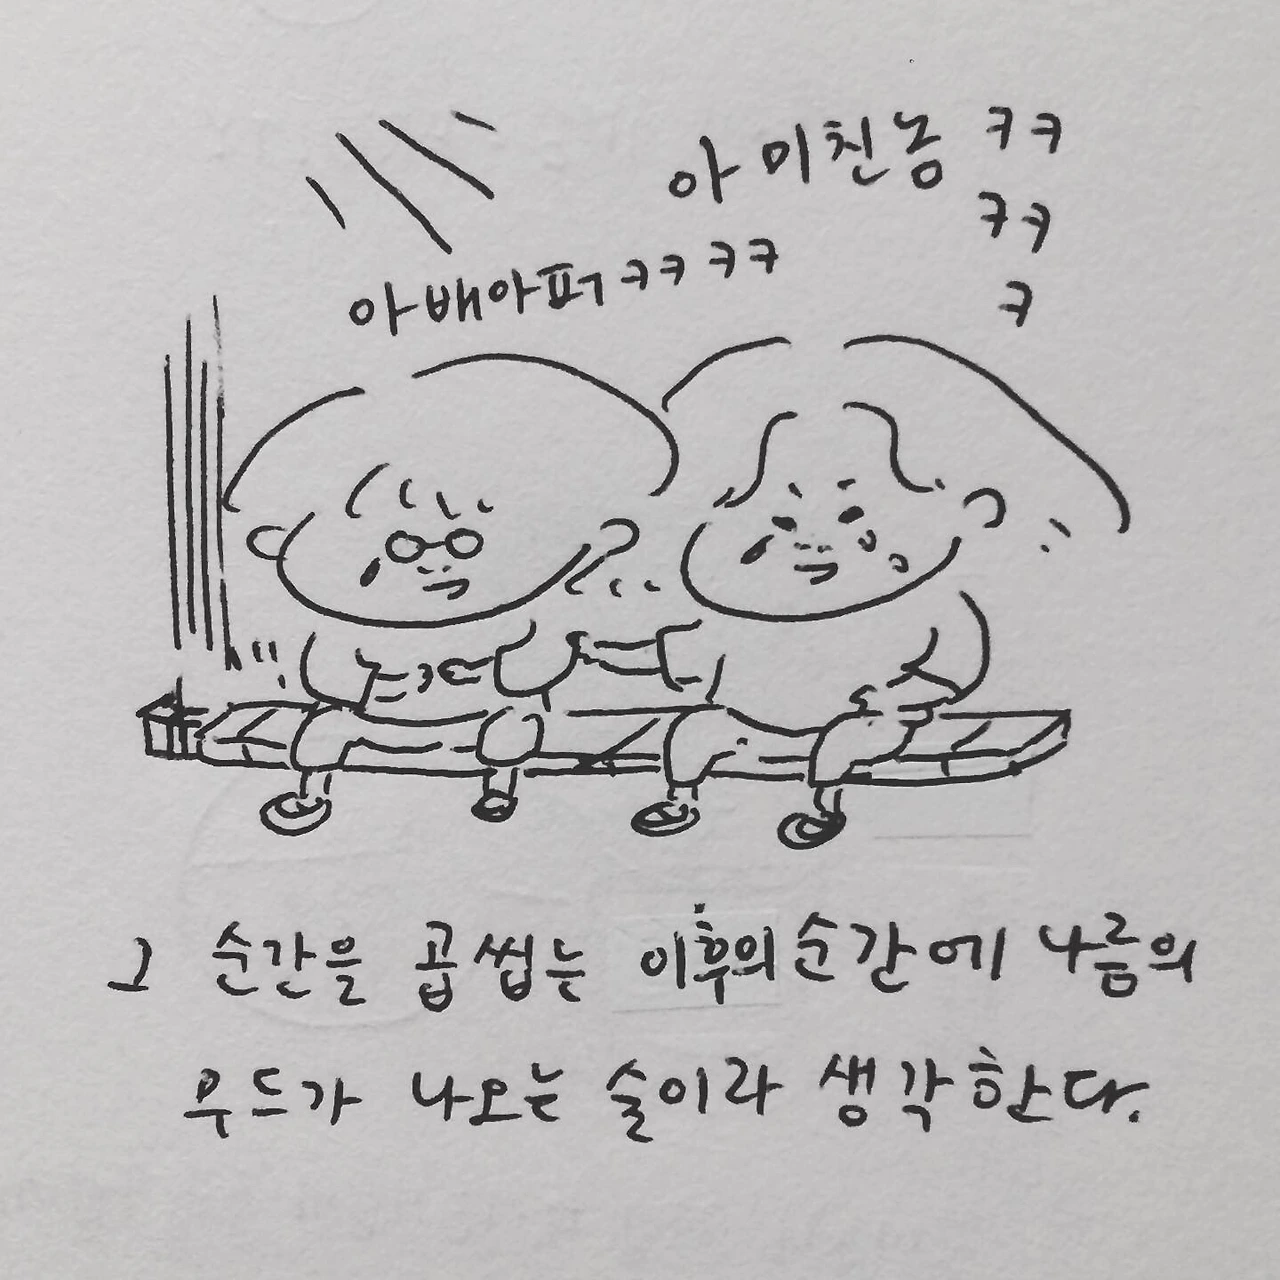 아 미친놈 ㅋㅋ
ㅋㅋ
ㅋ
아배아퍼ㅋㅋㅋㅋ
그 순간을 곱씹는 이후의 순간에 나름의
무드가 나오는 술이라 생각한다.